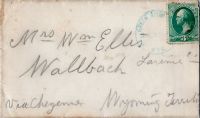 Mrs Wm Ellis
Wallbach
Laramie
via Cheyenne Wyoming Territ